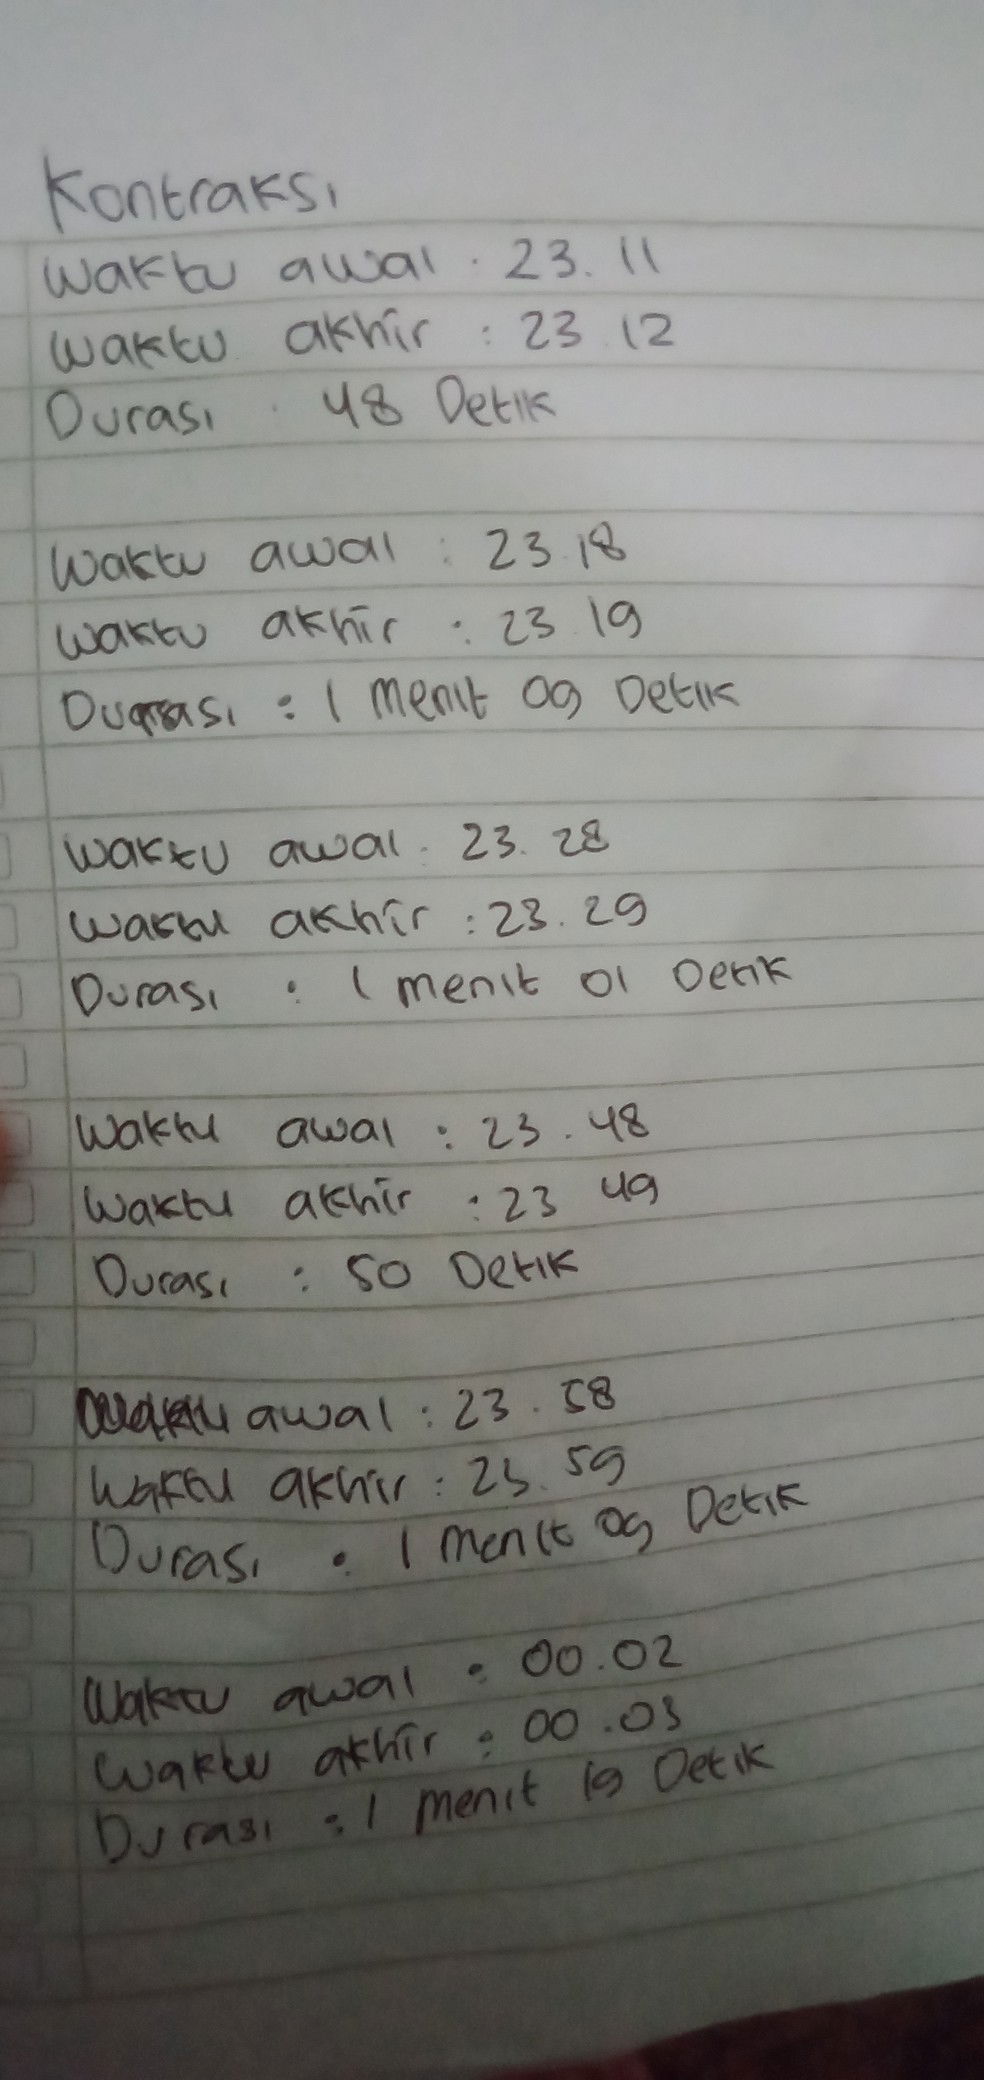 Kontraksi
Waktu awal : 23.11
Waktu akhir : 23.12
Durasi : 48 Detik
Waktu awal : 23.18
Waktu akhir : 23.19
Durasi : 1 Menit 09 Detik
Waktu awal : 23.28
Waktu akhir : 23.29
Durasi : 1 menit 01 Detik
Waktu awal : 23.48
Waktu akhir : 23 49
Durasi : 50 Detik
Waktu awal : 23.58
Waktu akhir : 23.59
Durasi : 1 menit 09 Detik
Waktu awal : 00.02
Waktu akhir : 00.03
Durasi : 1 menit 19 Detik